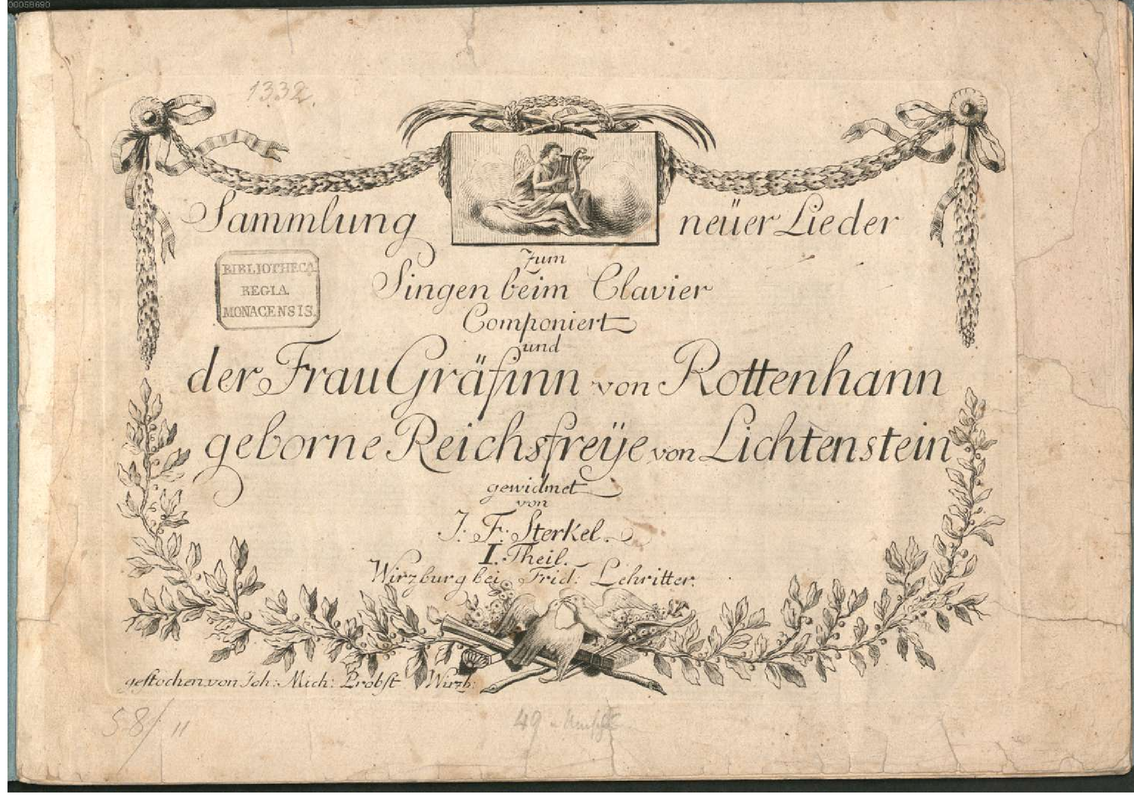 00059690
1332.
Sammlung neüer Lieder
zum
Singen beim Clavier
Componiert
und
der Frau Gräfinn von Rottenhann
geborne Reichsfreÿe von Lichtenstein
gewidmet
von
J. F. Sterkel.
I. Theil.
Wirzburg bei Frid: Lehritter.
gestochen von Joh: Mich: Probst Wirzb:
BIBLIOTHECA
REGIA
MONACENSIS.
58/11
49